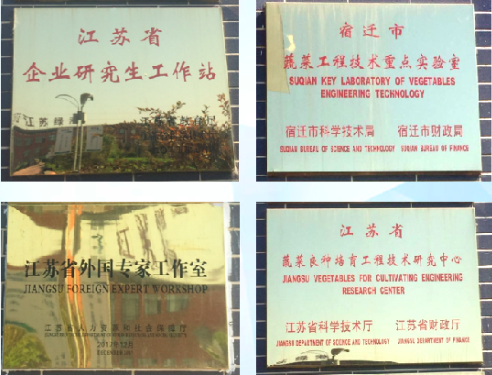 江苏省
企业研究生工作站
宿迁市
蔬菜工程技术重点实验室
SUQIAN KEY LABORATORY OF VEGETABLES
ENGINEERING TECHNOLOGY
宿迁市科学技术局 宿迁市财政局
SUQIAN BUREAU OF SCIENCE AND TECHNOLOGY SUQIAN BUREAU OF FINANCE
江苏省外国专家工作室
JIANGSU FOREIGN EXPERT WORKSHOP
江苏省人力资源和社会保障厅
2017年12月
江苏省
蔬菜良种培育工程技术研究中心
JIANGSU VEGETABLES FOR CULTIVATING ENGINEERING
RESEARCH CENTER
江苏省科学技术厅 江苏省财政厅
JIANGSU DEPARTMENT OF SCIENCE AND TECHNOLOGY JIANGSU DEPARTMENT OF FINANCE